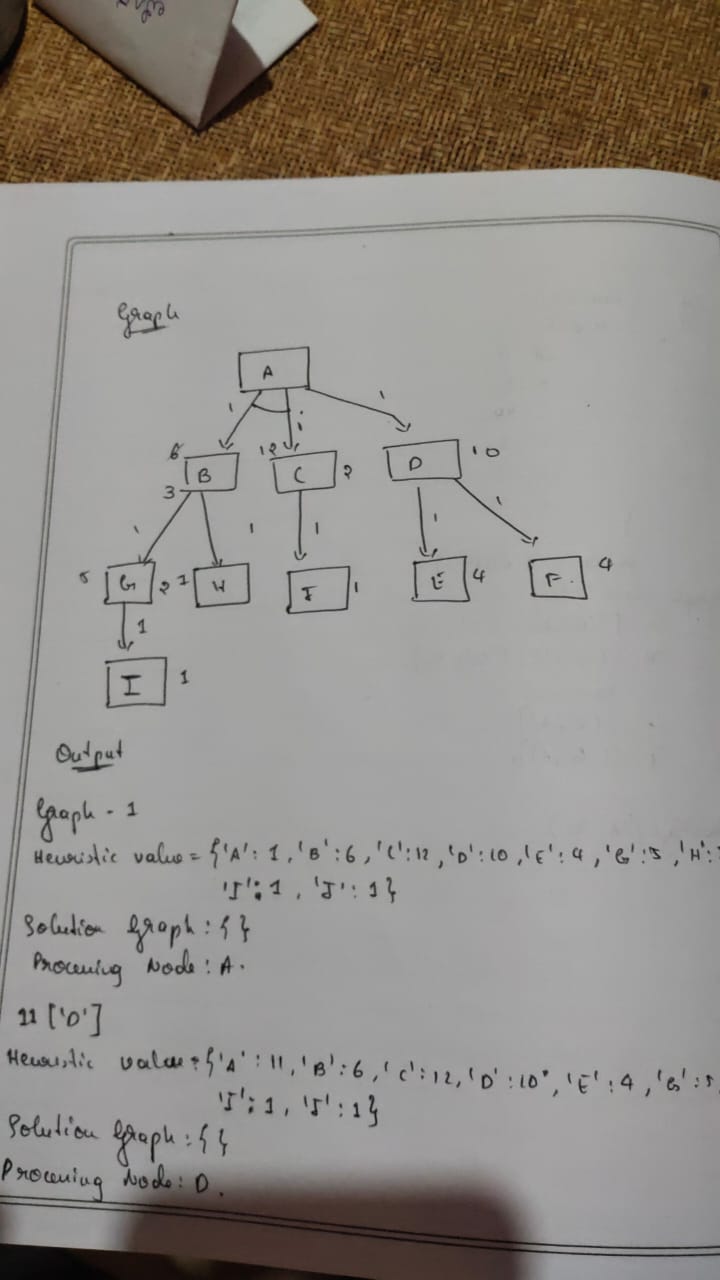 Graph
A
1 1 1
6 B 3
12 C 2
D 10
1 1 1 1 1
5 G 2
7 H
J 1
E 4
F 4
1
I 1
Output
Graph - 1
Heuristic value = {'A': 1, 'B': 6, 'C': 12, 'D': 10, 'E': 4, 'G': 5, 'H':
'I': 1, 'J': 1}
Solution Graph : { }
Processing Node : A.
11 ['D']
Heuristic value = {'A': 11, 'B': 6, 'C': 12, 'D': 10, 'E': 4, 'G': 5
'I': 1, 'J': 1}
Solution Graph : { }
Processing Node : D.